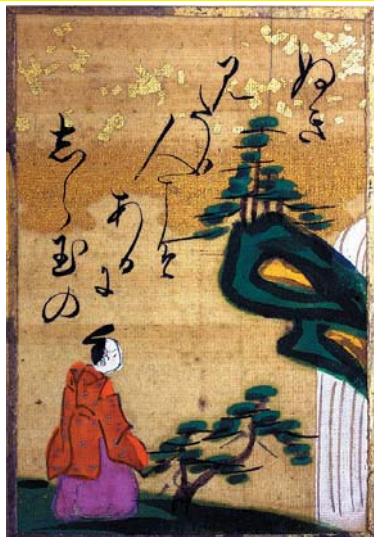 ぬき
みたる
人こそ
ある
しら玉の